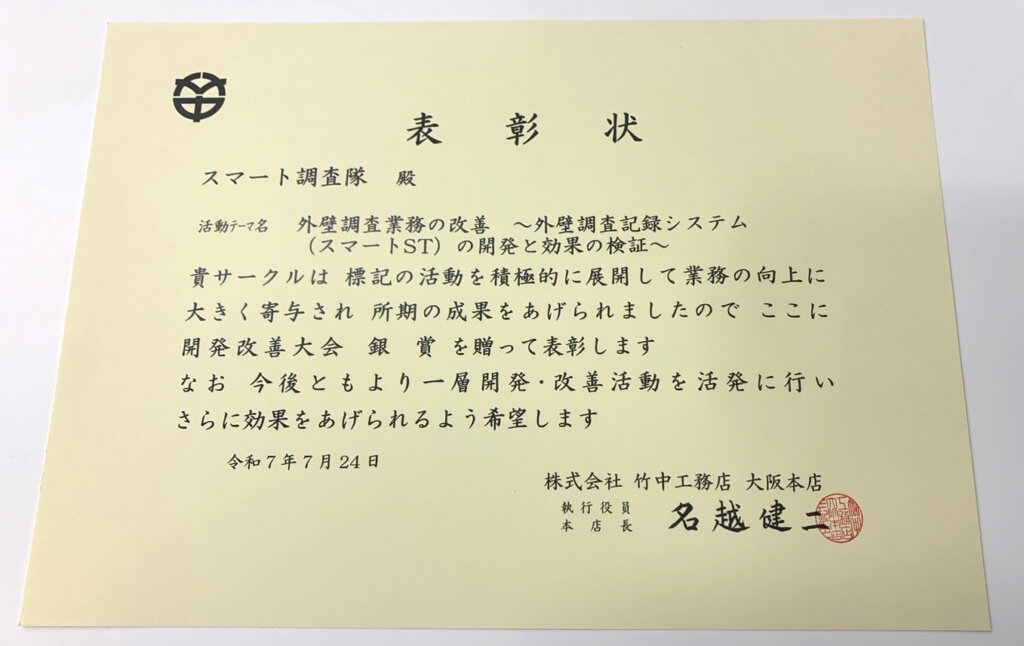 表彰状
スマート調査隊 殿
活動テーマ名 外壁調査業務の改善 ～外壁調査記録システム
（スマートST）の開発と効果の検証～
貴サークルは 標記の活動を積極的に展開して業務の向上に
大きく寄与され 所期の成果をあげられましたので ここに
開発改善大会 銀 賞 を贈って表彰します
なお 今後ともより一層開発・改善活動を活発に行い
さらに効果をあげられるよう希望します
令和7年7月24日
株式会社 竹中工務店 大阪本店
執行役員
本店長 名越健二